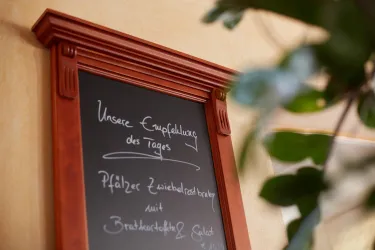 Unsere Empfehlung
des Tages
Pfälzer Zwiebelrostbraten
mit
Bratkartoffel & Salat